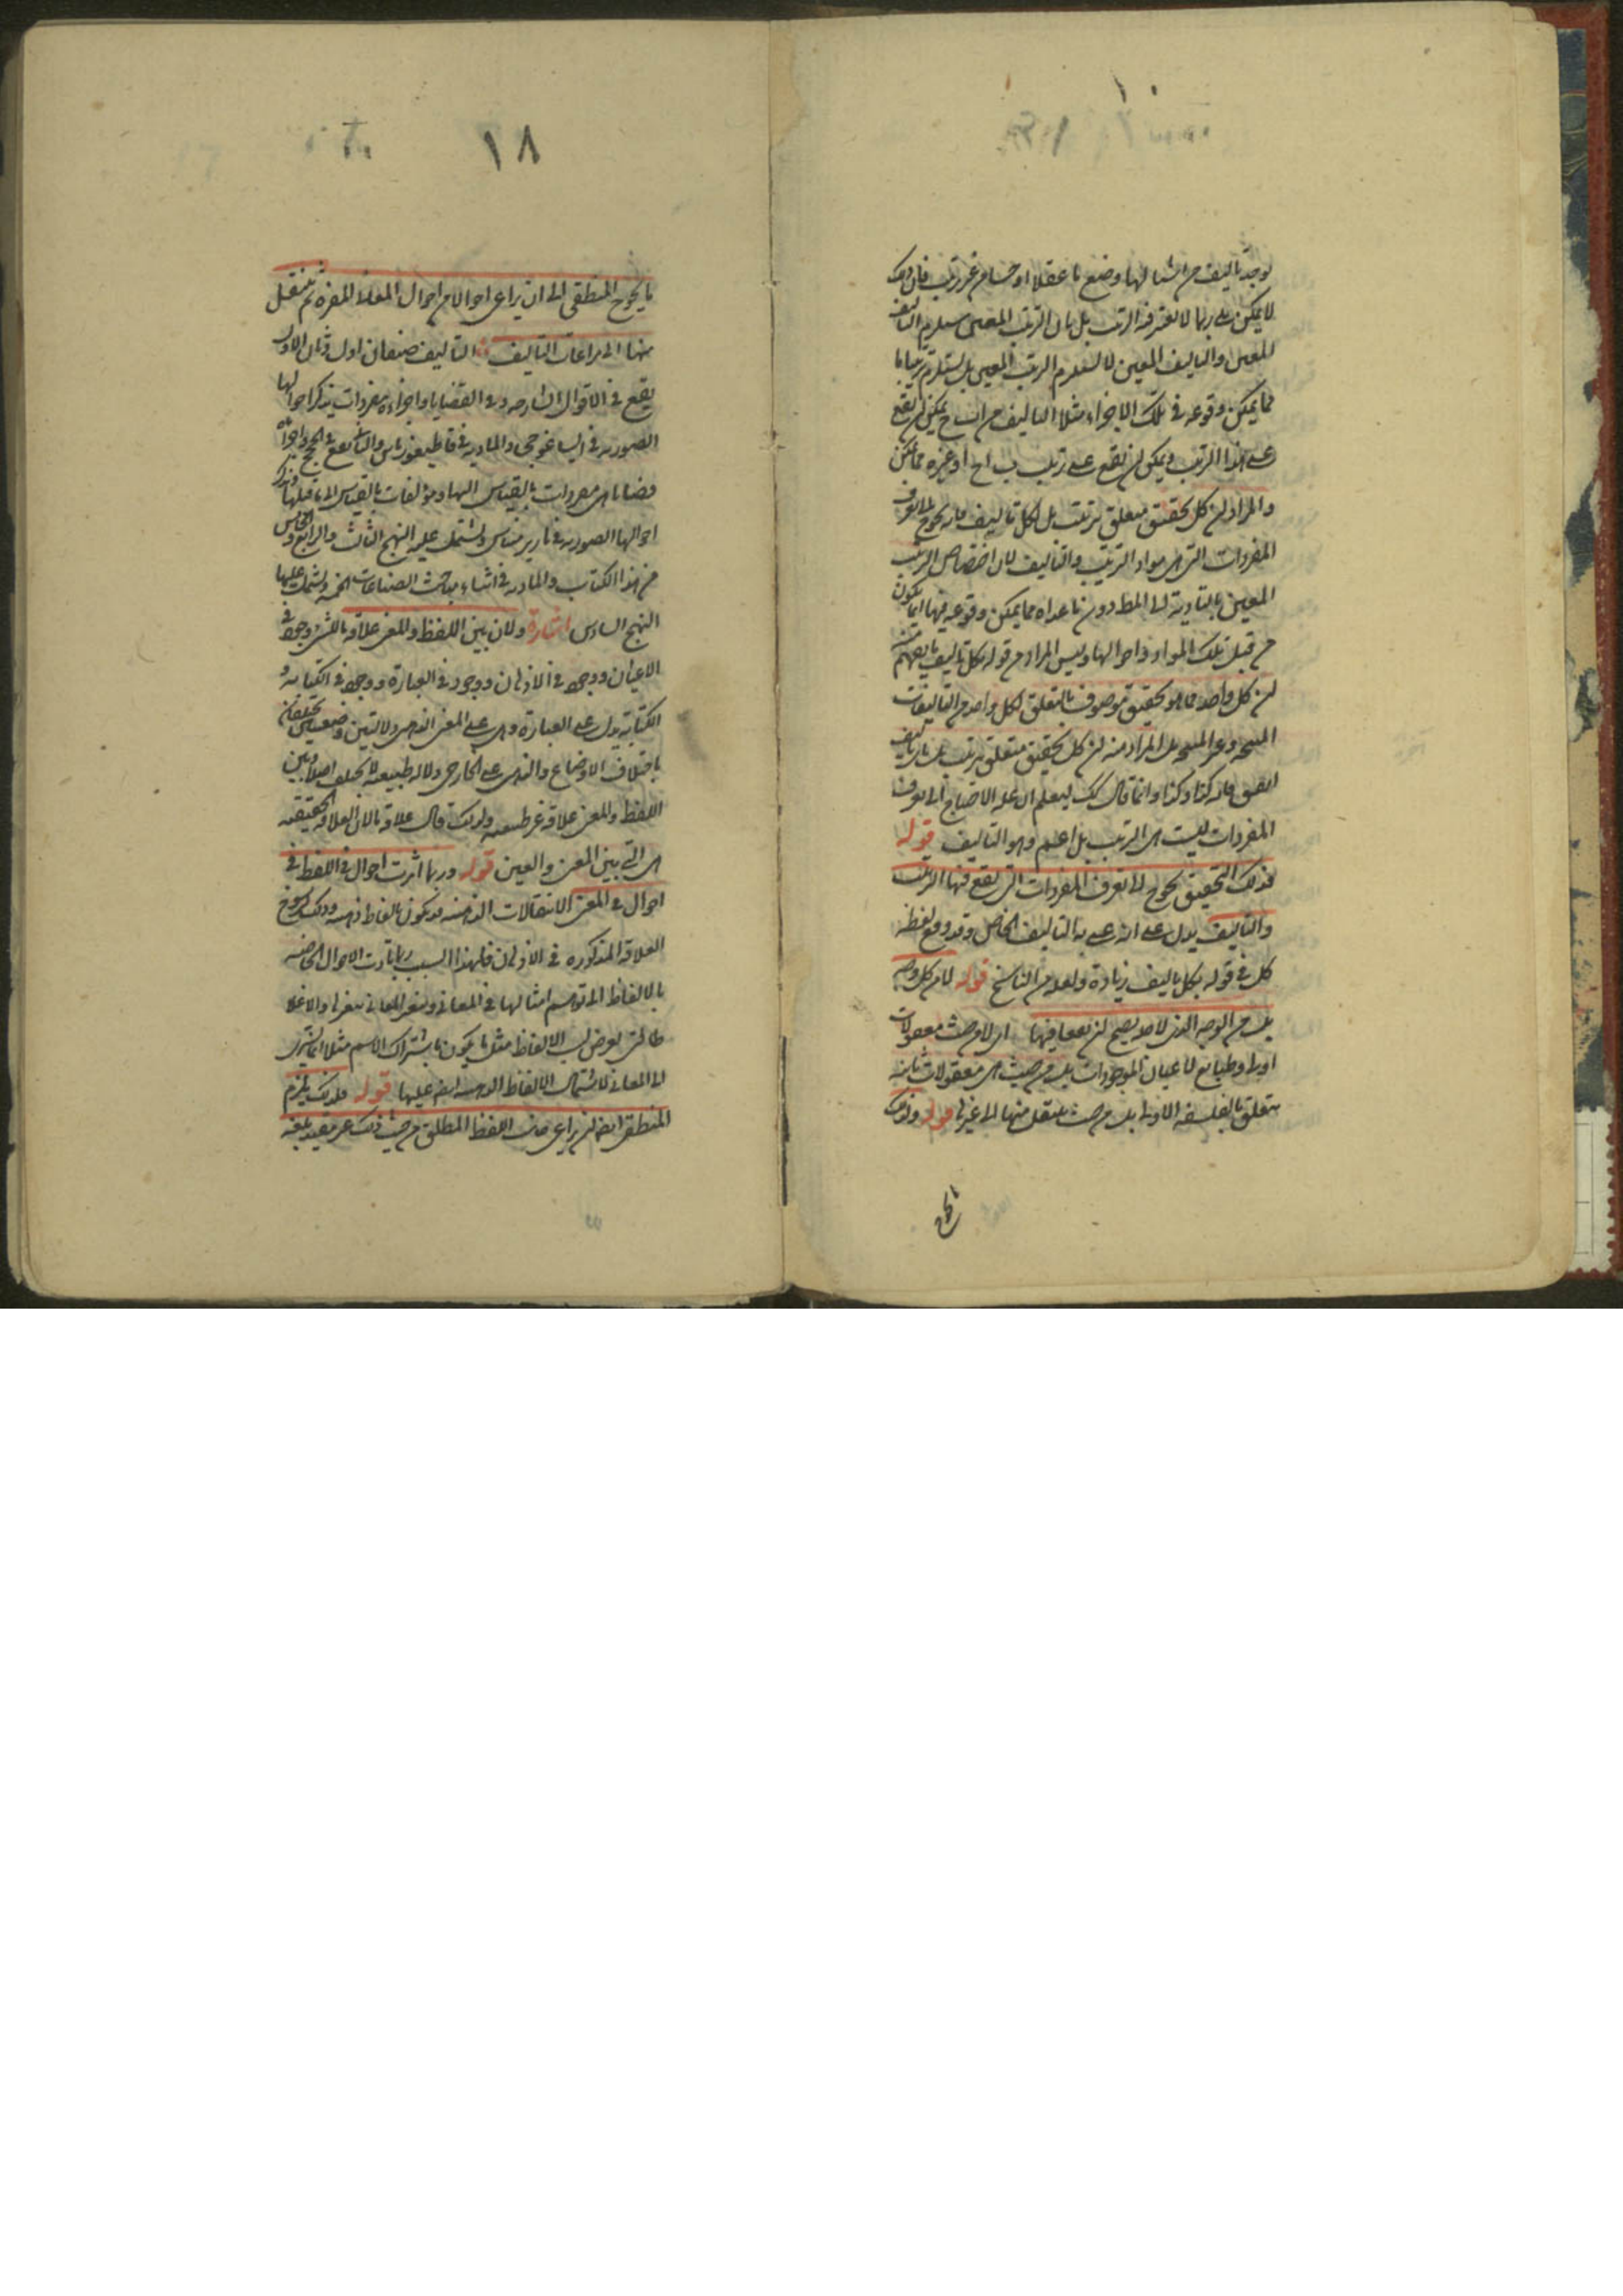 يوجد تاليف من اشيا لها وضع ما عقلا او حسا من غير ترتيب فان ذلك
لا يمكن بلى ربما لا يعتبر فيه الترتيب بل بان الترتيب المعين يستلزم التاليف
المعين والتاليف المعين لا يستلزم الترتيب المعين بل يستلزم ترتيبا ما
مما يمكن وقوعه في تلك الاجزاء مثلا التاليف من ا ب ج يمكن ان يقع
على هذا الترتيب ويمكن ان يقع على ترتيب ب ا ج او غيره مما يمكن
والمراد ان كل تحقيق متعلق بترتيب بل لكل تاليف فانه يحوج الى تعرف
المفردات التي هي مواد الترتيب والتاليف لان اختصاص الترتيب
المعين بالتادية الى المط دون ما عداه مما يمكن وقوعه فيها انما يكون
من قبل تلك المواد واحوالها وليس المراد من قوله بكل تاليف ما يفهم منه
ان كل واحد مما هو تحقيق موصوف بالتعلق بكل واحد من التاليفات
المراد منه ان كل تحقيق متعلق بترتيب بل بتاليف
اتفق فانه كذا وكذا وانما قال ذلك ليعلم ان علة الاحتياج الى تعرف
المفردات ليست هي الترتيب بل اعم وهو التاليف قوله
فذلك التحقيق يحوج الى تعرف المفردات التي يقع فيها الترتيب
والتاليف يدل على انه عنى به التاليف الخاص وقد وقع لفظة
كل في قوله بكل تاليف زيادة ولعله من الناسخ قوله لا من كل وجه
بل من الوجه الذي لاجله يصح ان يقعا فيها اي لا من حيث معقولات
اولى وطبايع لاعيان الموجودات بل من حيث هي معقولات ثانيه
يتعلق بالفلسفة الاولى بل من حيث ينتقل منها الى غيرها قوله ولذلك
١٨
ما يحوج المنطقى الى ان يراعى احوالا من احوال المعانى المفرده ثم ينتقل
منها الى مراعات التاليف التاليف صنفان اول وثان الاول
يقع في الاقوال الشارحه وفي القضايا واجزاءه مفردات يذكر احوالها
الصوريه في ايساغوجى والماديه في قاطيغورياس والثانى يقع في الحجج واجزاءه
قضايا هي مفردات بالقياس اليها ومؤلفات بالقياس الى ما قبلها ويذكر
احوالها الصوريه في بارير ميناس ويشتمل عليه النهج الثالث والرابع والخامس
من هذا الكتاب والماديه في اثناء مباحث الصناعات الخمسه ويشتمل عليها
النهج السادس اشارة ولان بين اللفظ والمعنى علاقة ما للشئ وجود في
الاعيان ووجود في الاذهان ووجود في العبارة ووجود في الكتابة و
الكتابة يدل على العبارة وهي على المعنى الذهنى دلالتين وضعيتين تختلفان
باختلاف الاوضاع والذهنى على الخارجى دلالة طبيعية لا يختلف اصلا وبين
اللفظ والمعنى علاقة غير طبيعيه ولذلك قال علاقة ما لان العلاقه الحقيقيه
هي التي بين المعنى والعين قوله وربما اثرت احوال في اللفظ في
احوال في المعنى الانتقالات الذهنيه قد يكون بالفاظ ذهنيه وذلك لرسوخ
العلاقه المذكوره في الاذهان فلهذا السبب ربما تادت الاحوال الخاصه
بالالفاظ الى توهم امثالها في المعانى وتغير المعانى بتغيرها والاغلاط
التى يعرض بسبب الالفاظ مثل ما يكون باشتراك الاسم مثلا انما تسرى
الى المعانى لاشتمال الالفاظ الذهنيه ايض عليها قوله فلذلك يلزم
المنطقى ايضا ان يراعى جانب اللفظ المطلق من حيث ذلك غير مقيد بلغه